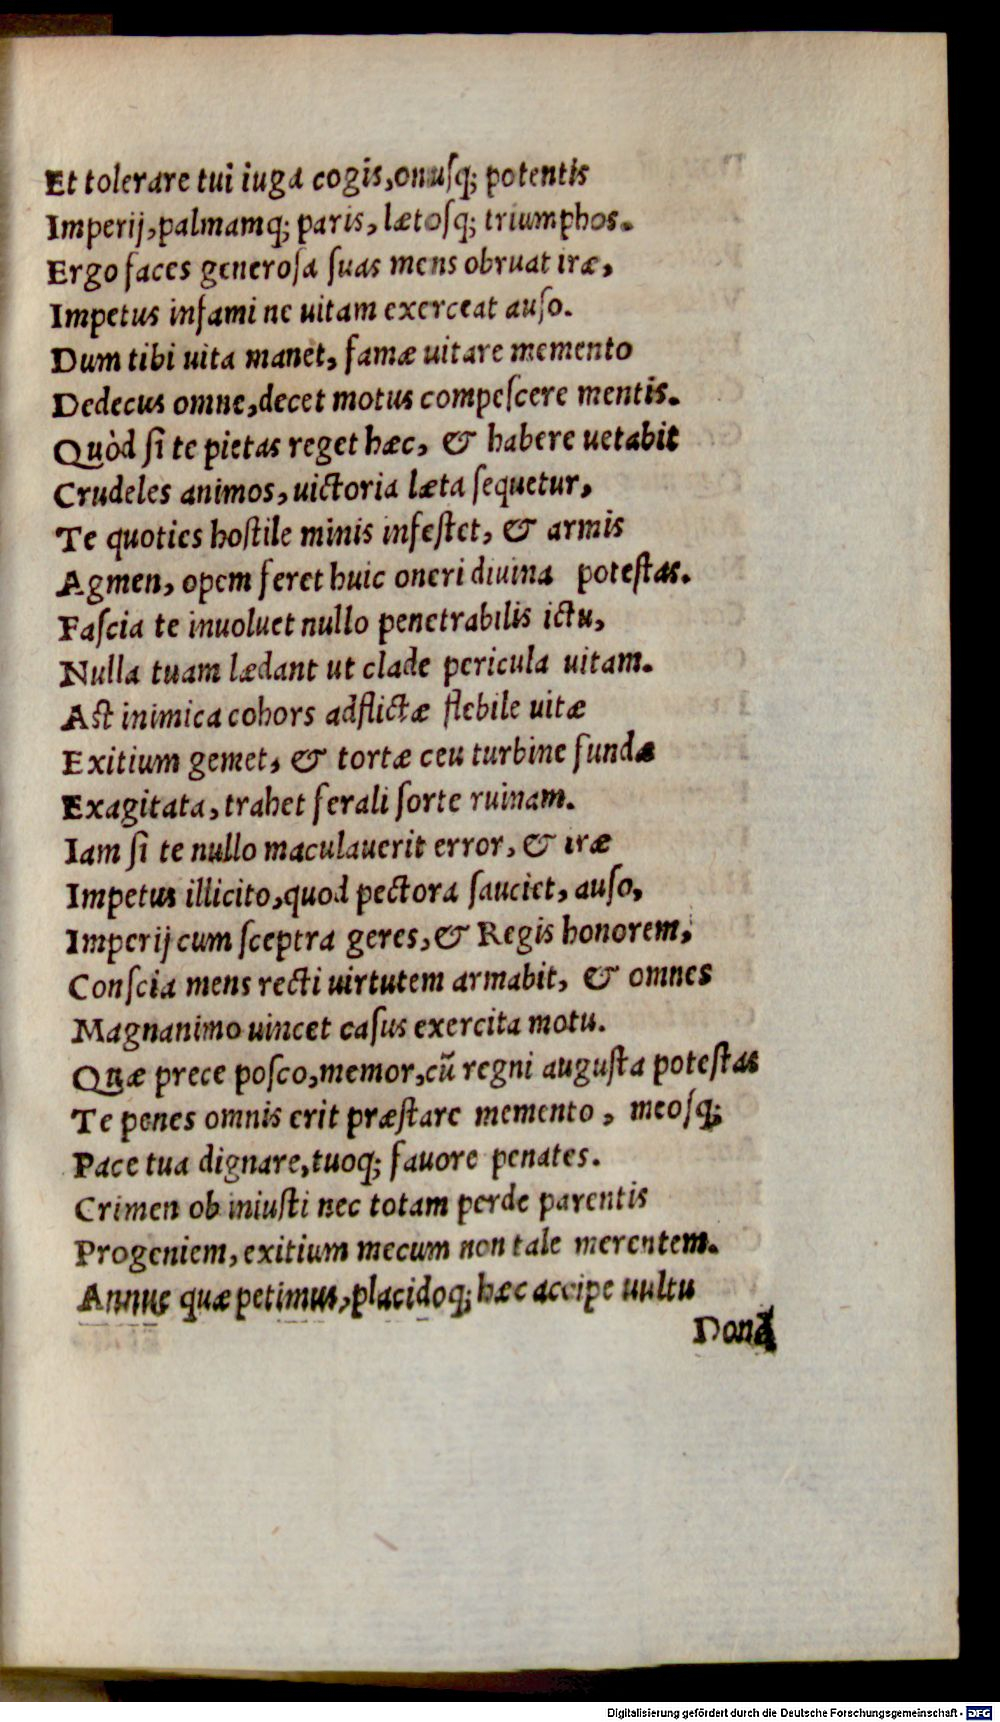 Et tolerare tui iuga cogis, onuſq; potentis
Imperij, palmamq; paris, lætoſq; triumphos.
Ergo faces generoſa ſuas mens obruat iræ,
Impetus infami ne uitam exerceat auſo.
Dum tibi uita manet, famæ uitare memento
Dedecus omne, decet motus compeſcere mentis.
Quòd ſi te pietas reget hæc, & habere uetabit
Crudeles animos, uictoria læta ſequetur,
Te quoties hoſtile minis infeſtet, & armis
Agmen, opem feret huic oneri diuina poteſtas.
Faſcia te inuoluet nullo penetrabilis ictu,
Nulla tuam lædant ut clade pericula uitam.
Aſt inimica cohors adflictæ flebile uitæ
Exitium gemet, & tortæ ceu turbine fundæ
Exagitata, trahet ferali ſorte ruinam.
Iam ſi te nullo maculauerit error, & iræ
Impetus illicito, quod pectora ſauciet, auſo,
Imperij cum ſceptra geres, & Regis honorem,
Conſcia mens recti uirtutem armabit, & omnes
Magnanimo uincet caſus exercita motu.
Quæ prece poſco, memor, cũ regni auguſta poteſtas
Te penes omnis erit præſtare memento, meoſq;
Pace tua dignare, tuoq; fauore penates.
Crimen ob iniuſti nec totam perde parentis
Progeniem, exitium mecum non tale merentem.
Annue quæ petimus, placidoq; hæc accipe uultu
Dona
Digitalisierung gefördert durch die Deutsche Forschungsgemeinschaft - DFG